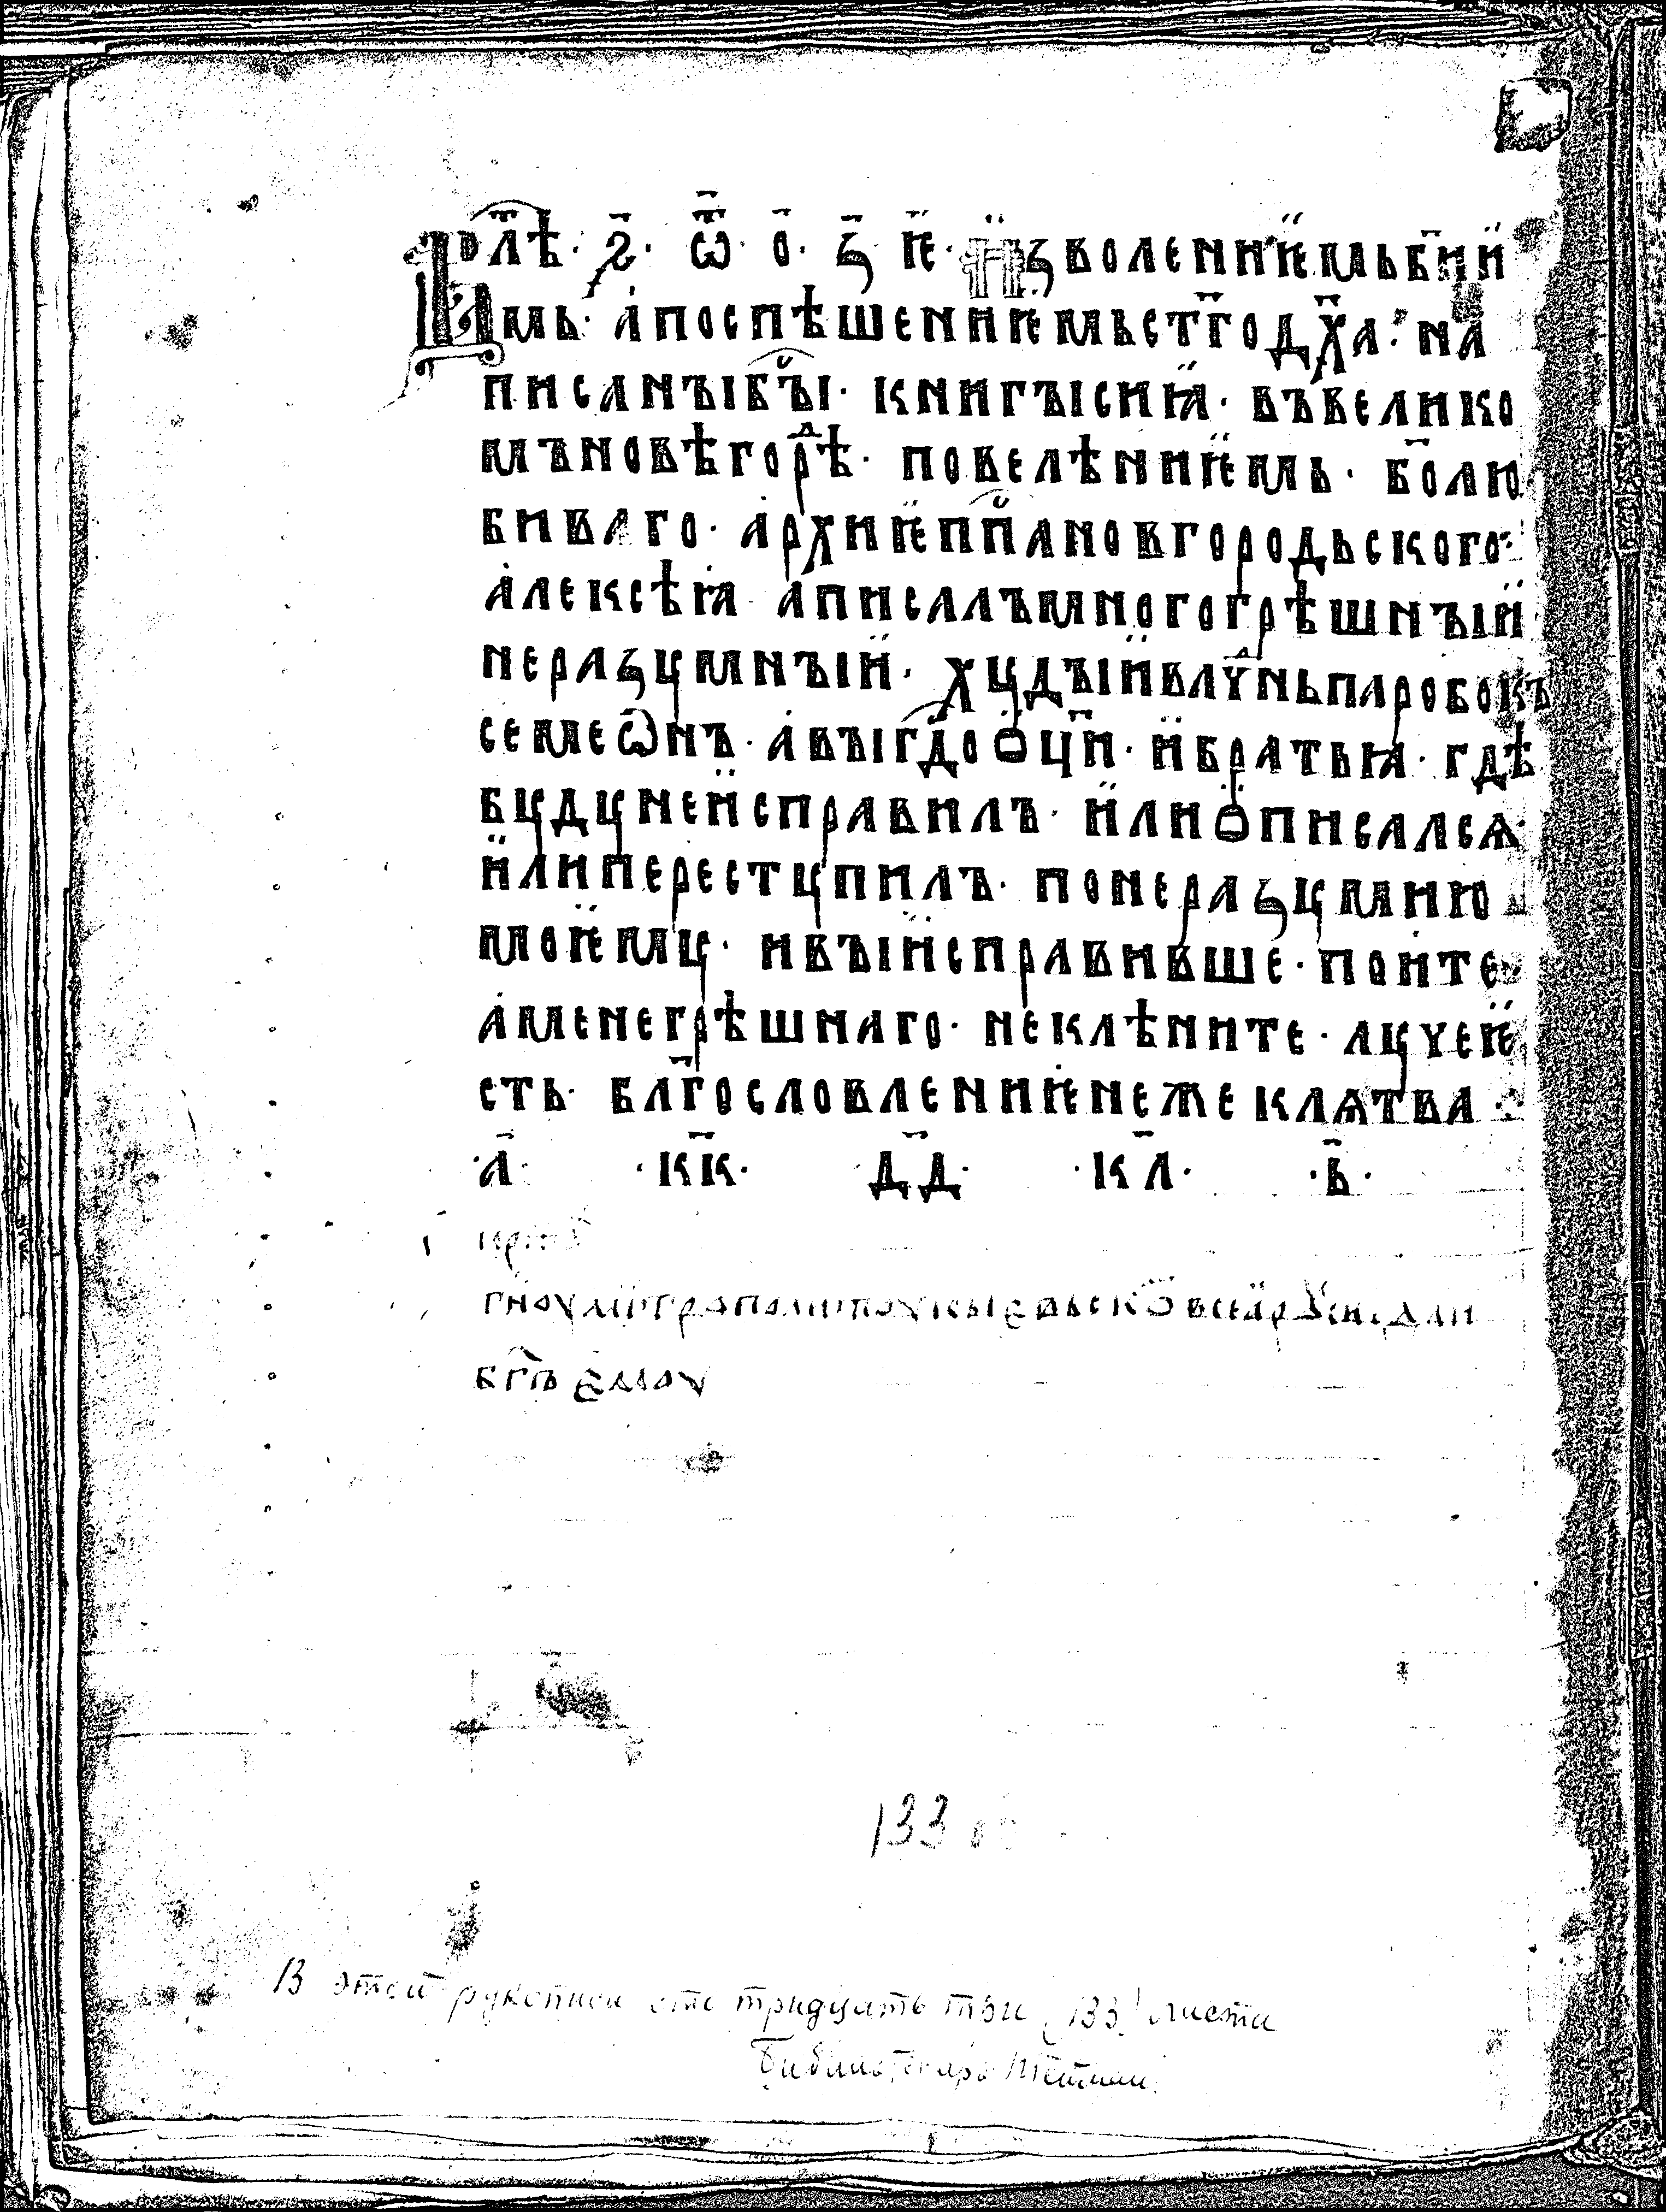 В лѣ҇т · ҂ѕ҃ · ѿ҃ · о҃ · з҃ · ѥ҃ · ꙇзволениѥмь б҃ии
ꙗмь · а поспѣшениѥмь ст҃го дх҃а · на
писанꙑ бꙑ҇ · книгꙑ сиꙗ · въ велико
мъ новѣгорⷣѣ · повелѣниѥмь · б҃олю
биваго · архиѥпп҇а новгородьского
алексѣꙗ а писалъ многогрѣшнꙑи
неразꙋмнꙑи · хꙋдꙑи влⷣѵнь паробокъ
семеѡнъ · а вꙑ г҇дⷭо ѻц҃и · и братьꙗ · гдѣ
бꙋдꙋ не исправилъ · или ѻписалсѧ ·
или перестꙋпилъ · по неразꙋмию
моѥмꙋ · и вꙑ исправивше · поите
а мене грѣшнаго · не кленѣите · а ꙋче ѥ
сть · блг҃ословлениѥ неже клѧтва
·а҃· ·к҃к· ·д҃д· ·к҃л· ·в҃·
133 об
В этой рукописи сто тридцать три (133) листа
Библиотекарь